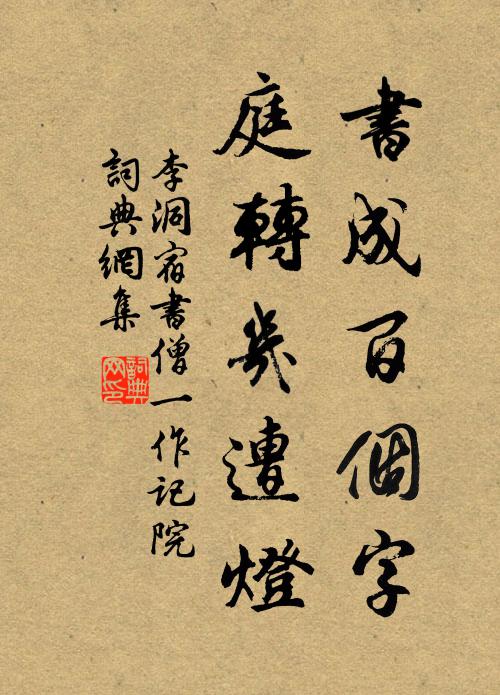 書成百個字
庭轉幾遭燈
李洞宿書僧一作記院
詞典網集
詞典
网印